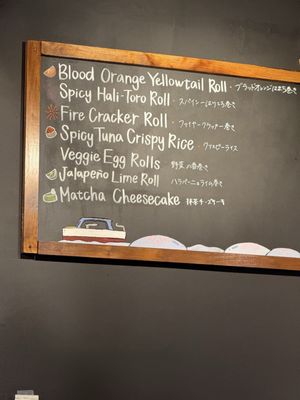 Blood Orange Yellowtail Roll - ブラッドオレンジはまち巻き
Spicy Hali-Toro Roll - スパイシーはりとろ巻き
Fire Cracker Roll - ファイヤークラッカー巻き
Spicy Tuna Crispy Rice - クリスピーライス
Veggie Egg Rolls 野菜 春巻き
Jalapeño Lime Roll ハラペーニョライム巻き
Matcha Cheesecake 抹茶チーズケーキ